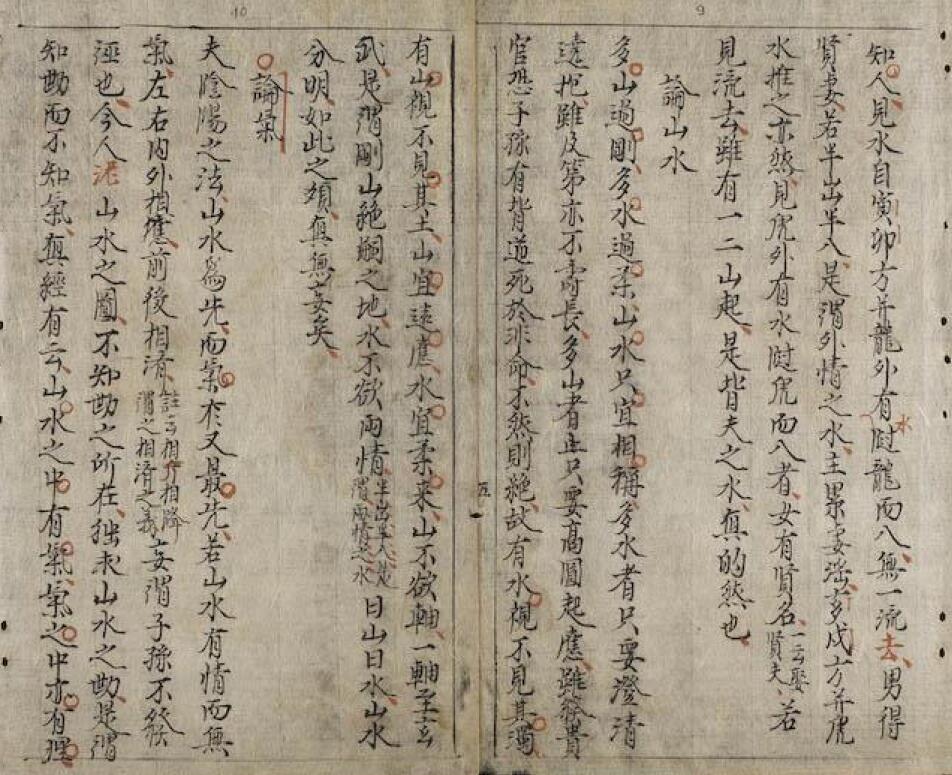 9
知人見水自寅卯方并龍外有水龍而入無一流去男得
賢妻若半出半入是謂外情之水主妻滛戌方并虎
水推之亦然見虎外有水虎而入者女有賢名一云娶賢夫若
見流去雖有一二山起是皆夫之水真的然也
論山水
多山過剛多水過柔山水只宜相稱多水者只要澄清
遠抱雖及第亦不壽長多山者止只要高圓起應雖發貴
官恐子孫有背道死於非命不然則絶故有水視不見其濁
10
有山視不見其土山宜遠應水宜柔來山不欲軸一軸至玄
武是謂剛山絶嗣之地水不欲兩情半出半入是謂兩情之水曰山曰水山水
分明如此之類真無妄矣
論氣
夫陰陽之法山水爲先而氣亦又最先若山水有情而無
氣左右內外相應前後相濟註云相相降謂之相濟之義妄謂子孫不發
也今人泥山水之圖不知勘之所在求山水之勘是謂
知勘而不知氣真經有云山水之中有氣氣之中亦有理